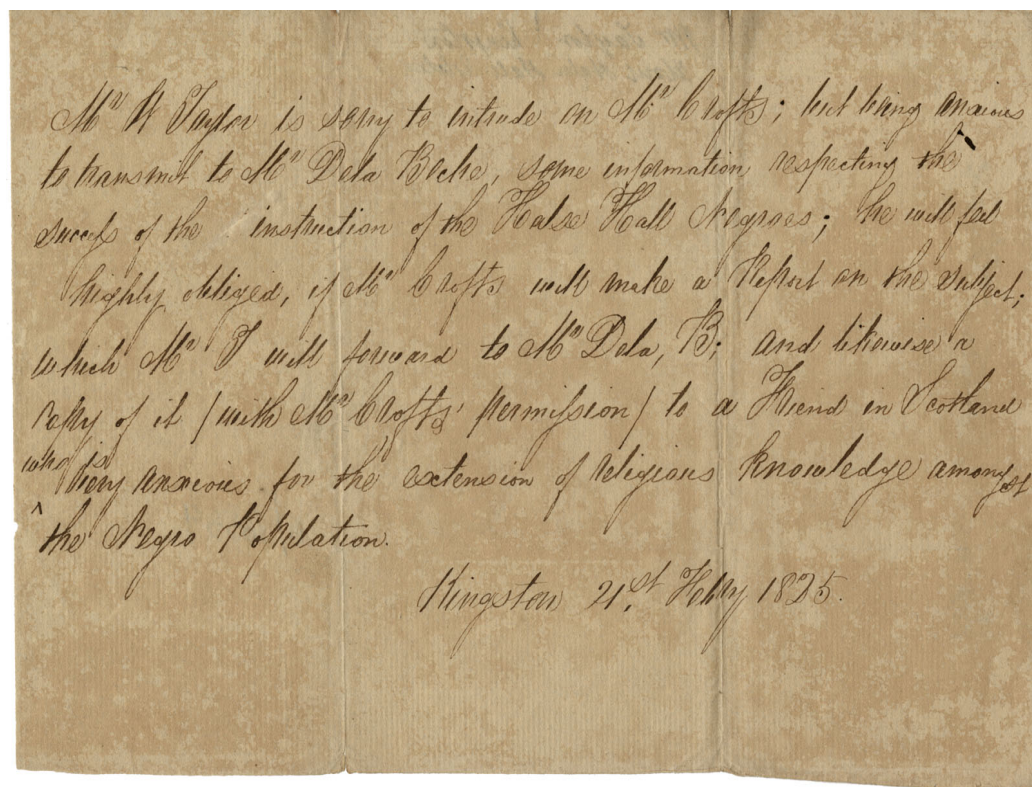 Mr W Taylor is sorry to intrude on Mr Crofts; but being anxious
to transmit to Mr Dela Beche, some information respecting the
success of the instruction of the Halse Hall Negroes; he will feel
highly obliged, if Mr Crofts will make a Report on the subject;
which Mr T will forward to Mr Dela, B; and likewise a
copy of it /with Mr Crofts' permission/ to a Friend in Scotland
who is very anxious for the extension of religious knowledge amongst
^ the Negro Population.
Kingston 21st Febry 1825.